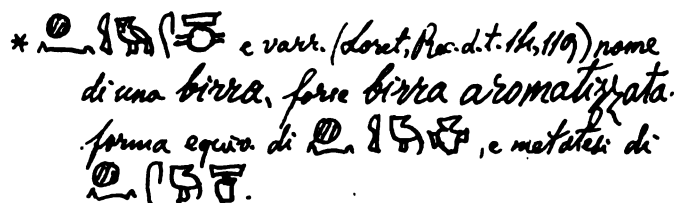 * e varr. (Loret, Rec. d. t. 14, 119) nome
di una birra, forse birra aromatizzata.
forma equiv. di , e metatesi di
.